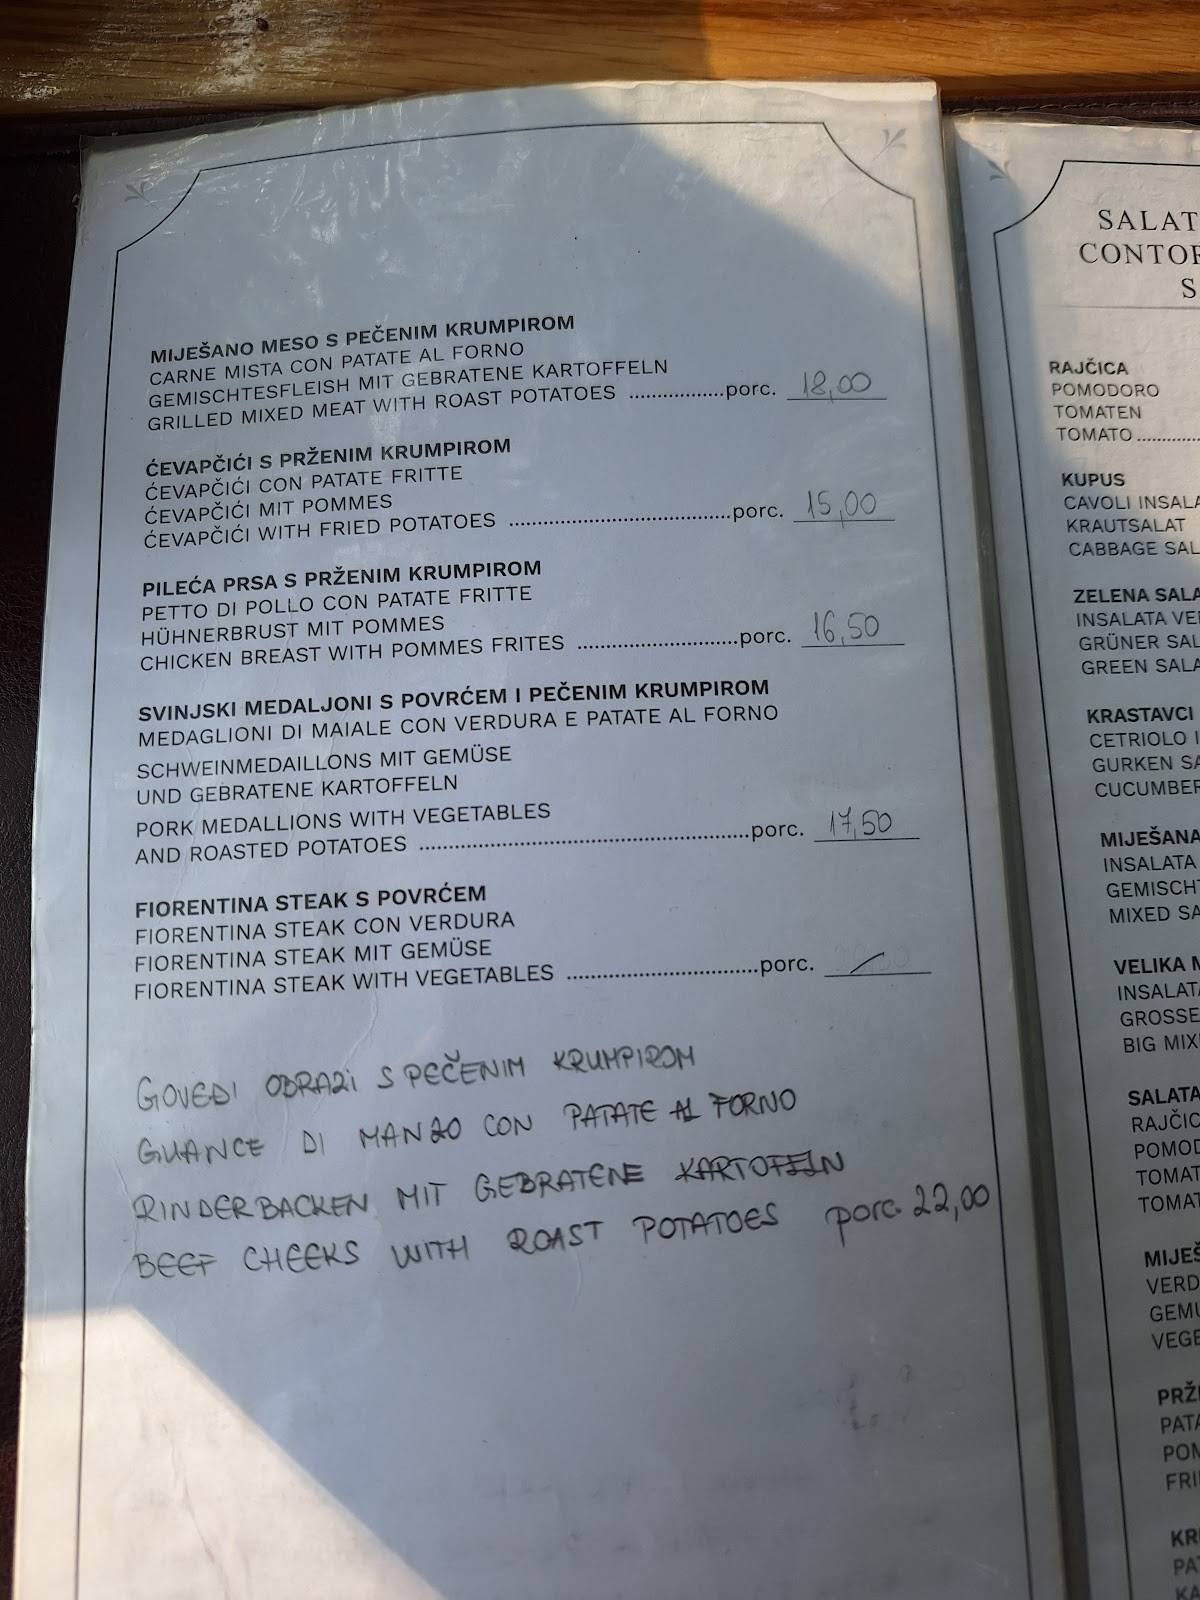 MIJEŠANO MESO S PEČENIM KRUMPIROM
CARNE MISTA CON PATATE AL FORNO
GEMISCHTESFLEISH MIT GEBRATENE KARTOFFELN
GRILLED MIXED MEAT WITH ROAST POTATOES .................porc. 18,00
ĆEVAPČIĆI S PRŽENIM KRUMPIROM
ĆEVAPČIĆI CON PATATE FRITTE
ĆEVAPČIĆI MIT POMMES
ĆEVAPČIĆI WITH FRIED POTATOES ........................................porc. 15,00
PILEĆA PRSA S PRŽENIM KRUMPIROM
PETTO DI POLLO CON PATATE FRITTE
HÜHNERBRUST MIT POMMES
CHICKEN BREAST WITH POMMES FRITES .............................porc. 16,50
SVINJSKI MEDALJONI S POVRĆEM I PEČENIM KRUMPIROM
MEDAGLIONI DI MAIALE CON VERDURA E PATATE AL FORNO
SCHWEINMEDAILLONS MIT GEMÜSE
UND GEBRATENE KARTOFFELN
PORK MEDALLIONS WITH VEGETABLES
AND ROASTED POTATOES ............................................................porc. 17,50
FIORENTINA STEAK S POVRĆEM
FIORENTINA STEAK CON VERDURA
FIORENTINA STEAK MIT GEMÜSE
FIORENTINA STEAK WITH VEGETABLES ...................................porc.
GOVEĐI OBRAZI S PEČENIM KRUMPIROM
GUANCE DI MANZO CON PATATE AL FORNO
RINDERBACKEN MIT GEBRATENE KARTOFELN
BEEF CHEEKS WITH ROAST POTATOES porc. 22,00
SALAT
CONTOR
S
RAJČICA
POMODORO
TOMATEN
TOMATO
KUPUS
CAVOLI INSALA
KRAUTSALAT
CABBAGE SAL
ZELENA SALA
INSALATA VE
GRÜNER SAL
GREEN SALA
KRASTAVCI
CETRIOLO I
GURKEN SA
CUCUMBER
MIJEŠANA
INSALATA
GEMISCH
MIXED SA
VELIKA M
INSALATA
GROSSE
BIG MIX
SALATA
RAJČIC
POMOD
TOMAT
TOMAT
MIJEŠ
VERD
GEMÜ
VEGE
PRŽ
PATA
POM
FRI
KR
PA
KA